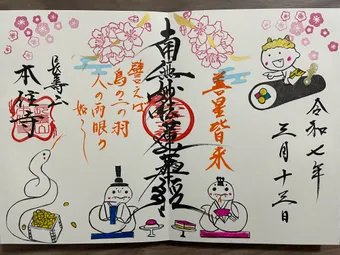 令和七年
三月十三日
善星皆来
南無妙法蓮華経
譬えば
鳥の二つの羽
人の両眼の
如し
長寿山
本住寺